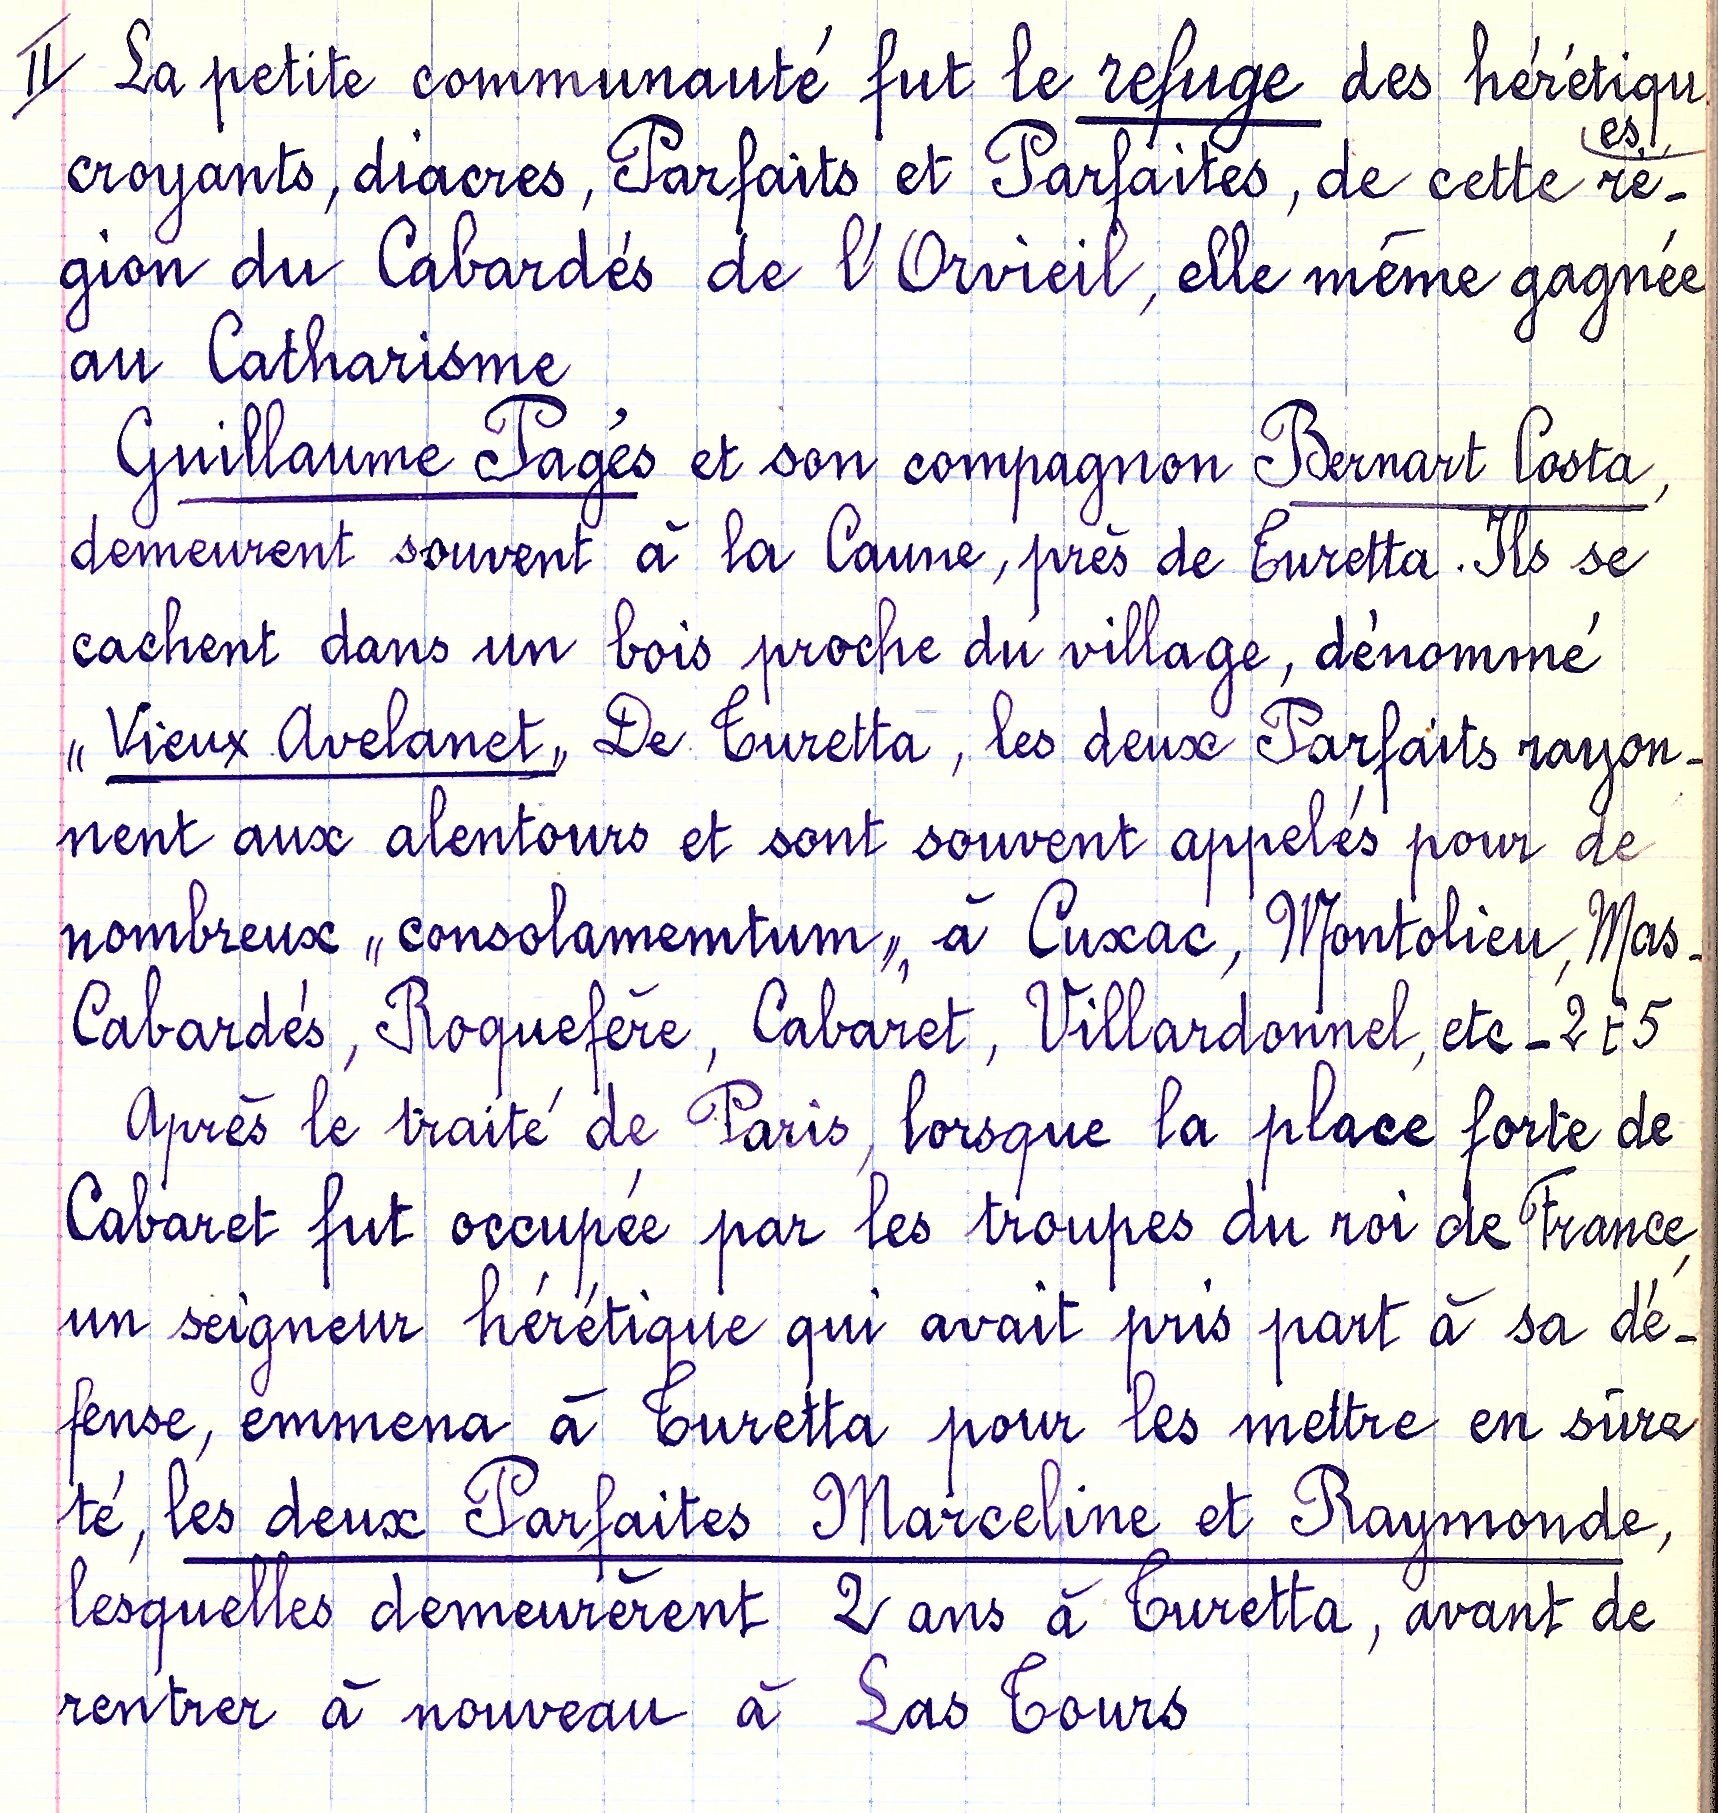 II La petite communauté fut le refuge des hérétiqu
es,
croyants, diacres, Parfaits et Parfaites, de cette ré-
gion du Cabardés de l'Orvieil, elle même gagnée
au Catharisme
Guillaume Pagés et son compagnon Bernart Costa,
demeurent souvent à la Caune, près de Turetta. Ils se
cachent dans un bois proche du village, dénommé
"Vieux Avelanet" De Turetta, les deux Parfaits rayon-
nent aux alentours et sont souvent appelés pour de
nombreux "consolamemtum", à Cuxac, Montolieu, Mas-
Cabardés, Roquefère, Cabaret, Villardonnel, etc - 2 t 5
Après le traité de Paris, lorsque la place forte de
Cabaret fut occupée par les troupes du roi de France,
un seigneur hérétique qui avait pris part à sa dé-
fense, emmena à Turetta pour les mettre en sûre
té, les deux Parfaites Marceline et Raymonde,
lesquelles demeurèrent 2 ans à Turetta, avant de
rentrer à nouveau à Las Tours